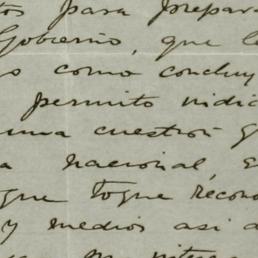 para prepara
Gobierno, que l
o como concluy
permito indic
una cuestion g
a nacional, e
que toque recono
y medios asi a